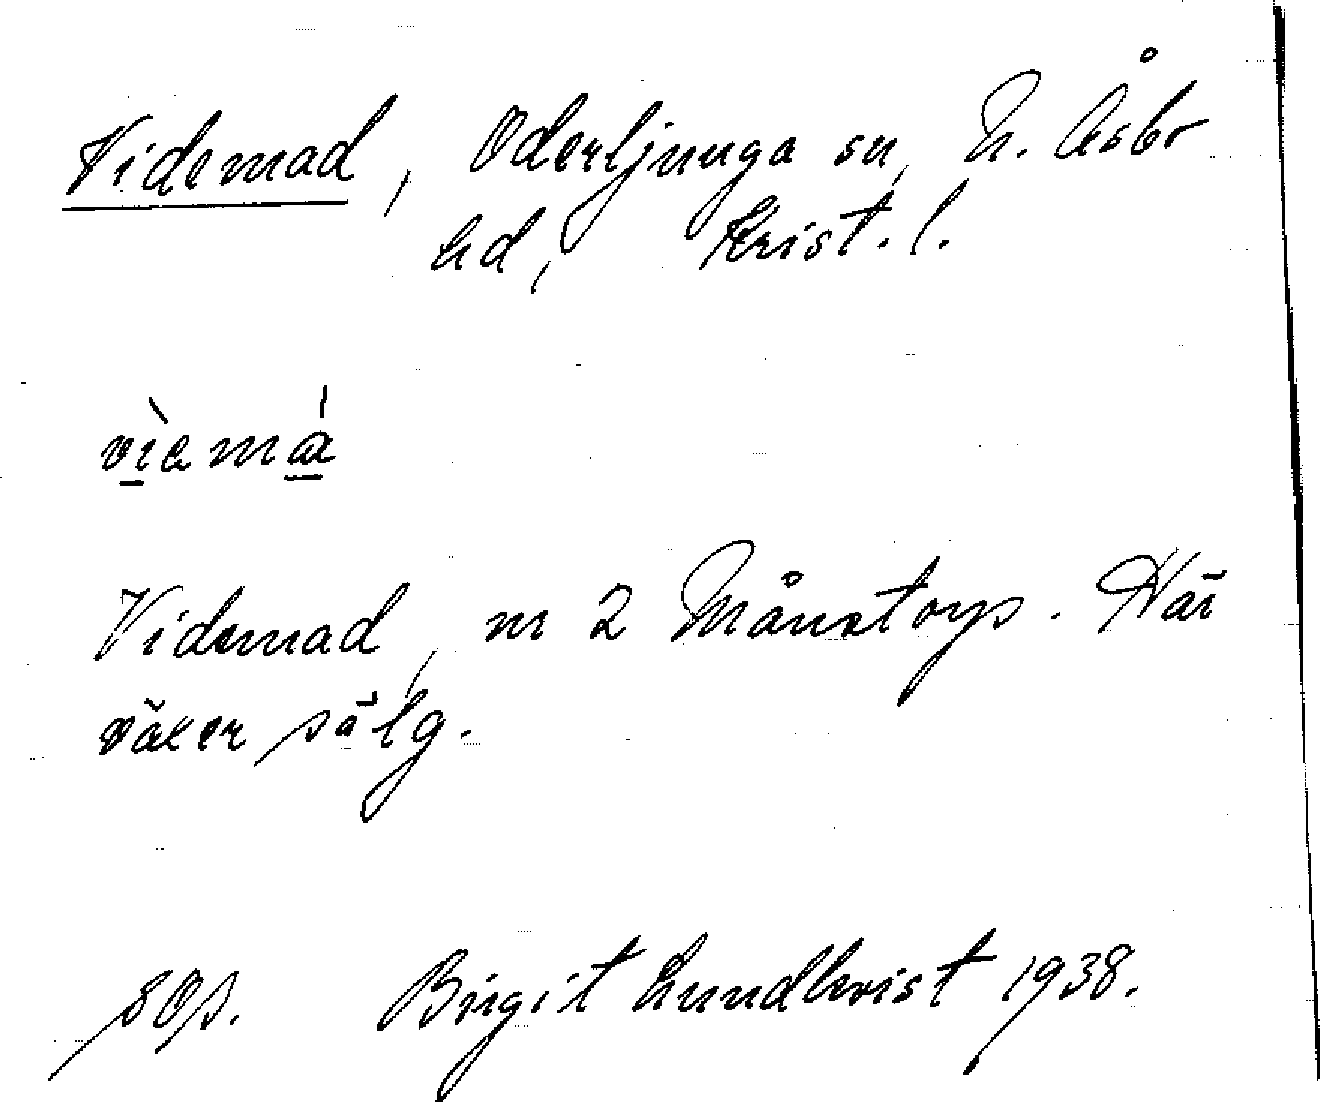 Videmad, Oderljunga sn, N. Åsbo
hd, Krist. l.
vìemá
Videmad, nr 2 Månstorp. Här
växer sälg.
sOp. Birgit Lundkvist 1938.